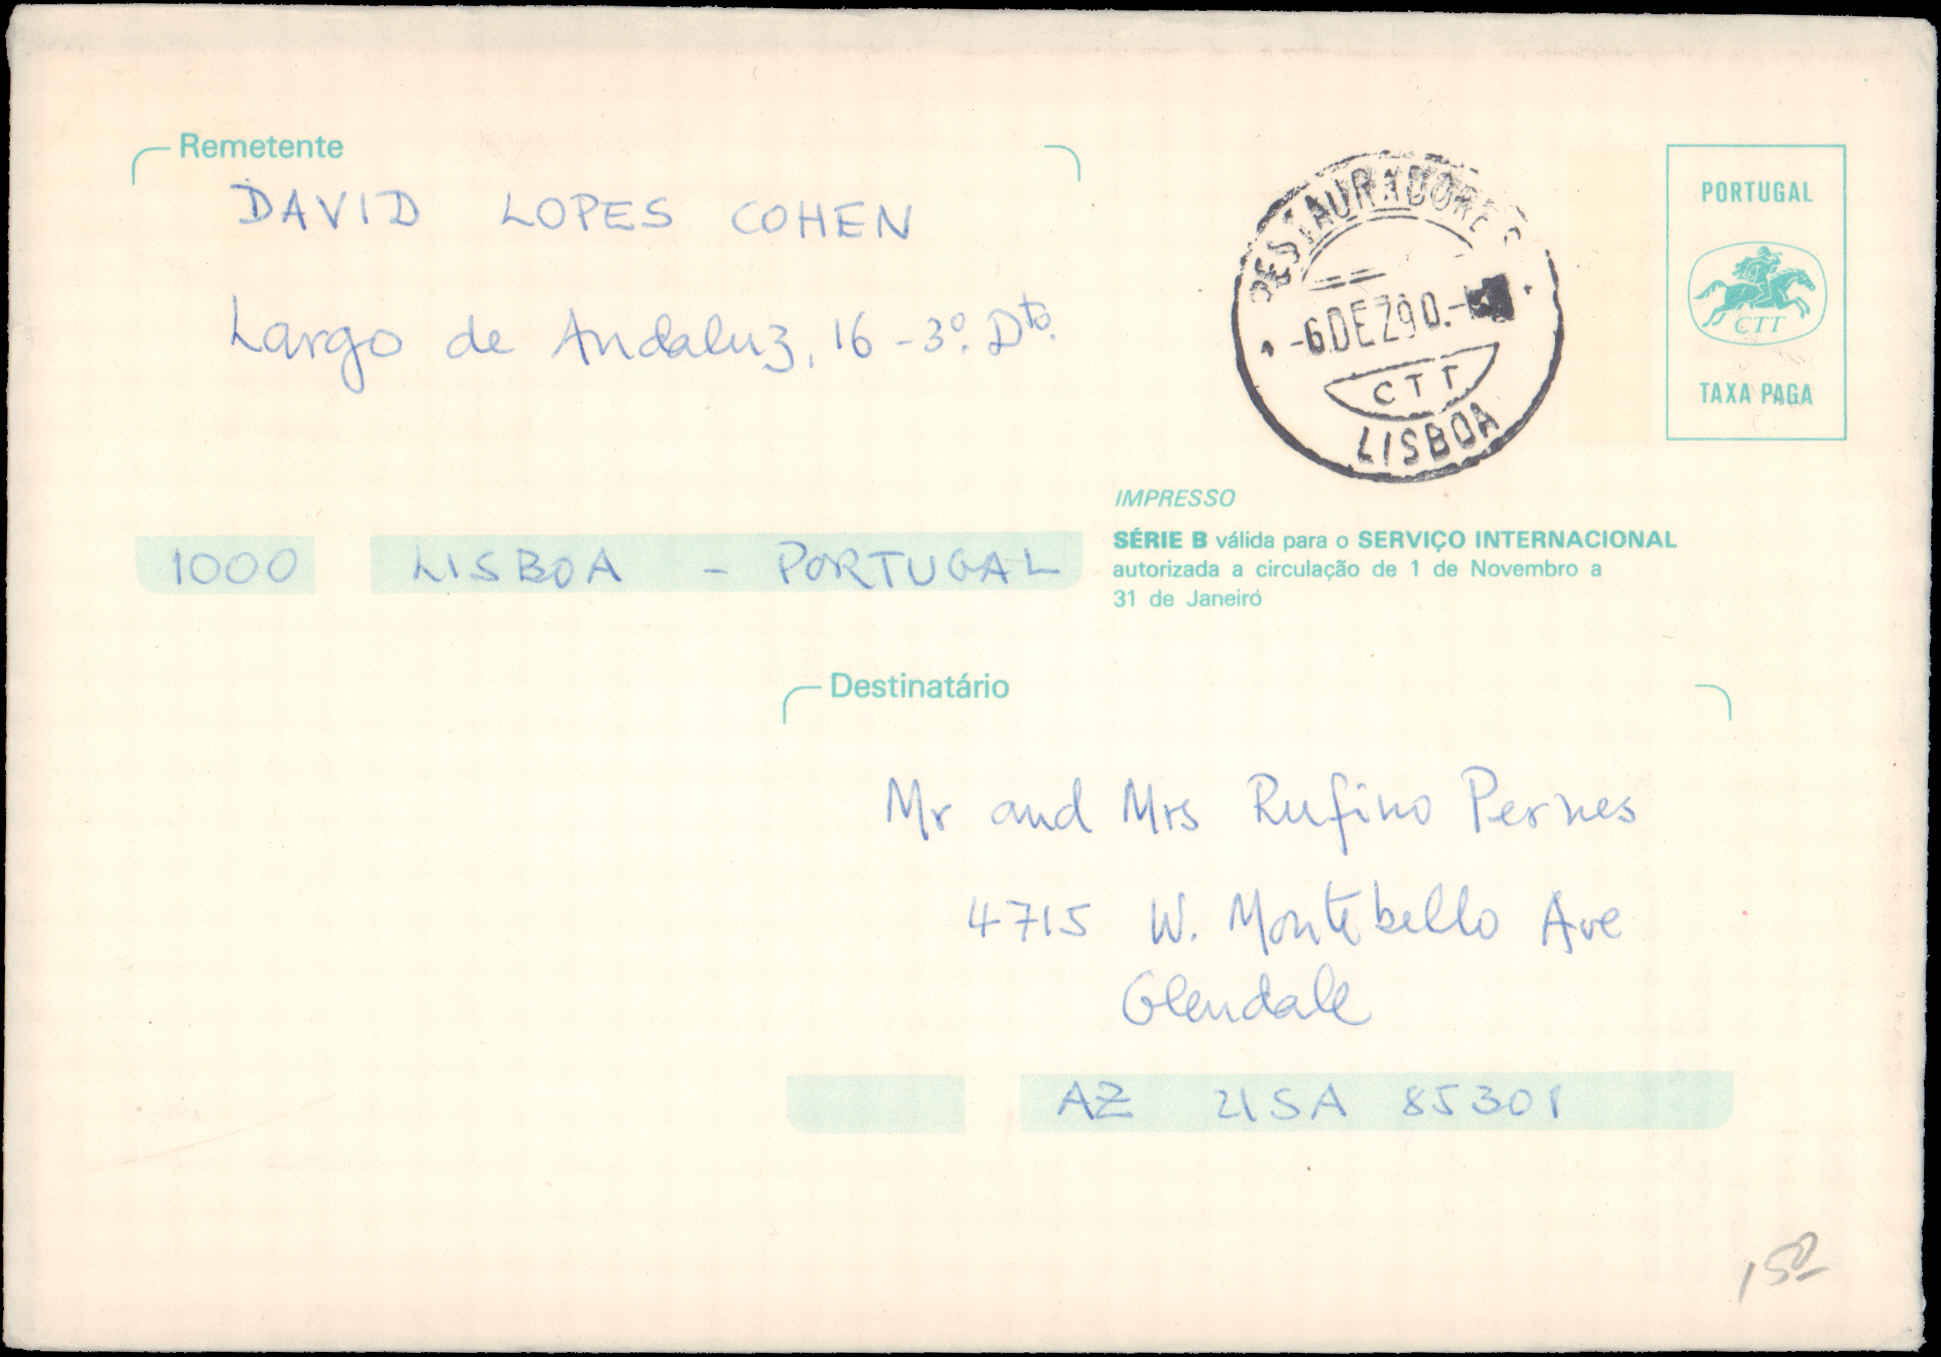 Remetente
DAVID LOPES COHEN
Largo de Andaluz, 16 - 3º. Dto.
1000 LISBOA - PORTUGAL
RESTAURADORES
-6.DEZ90.-
CTT
LISBOA
PORTUGAL
CTT
TAXA PAGA
IMPRESSO
SÉRIE B válida para o SERVIÇO INTERNACIONAL
autorizada a circulação de 1 de Novembro a
31 de Janeiro
Destinatário
Mr and Mrs Rufino Pernes
4715 W. Montebello Ave
Glendale
AZ USA 85301